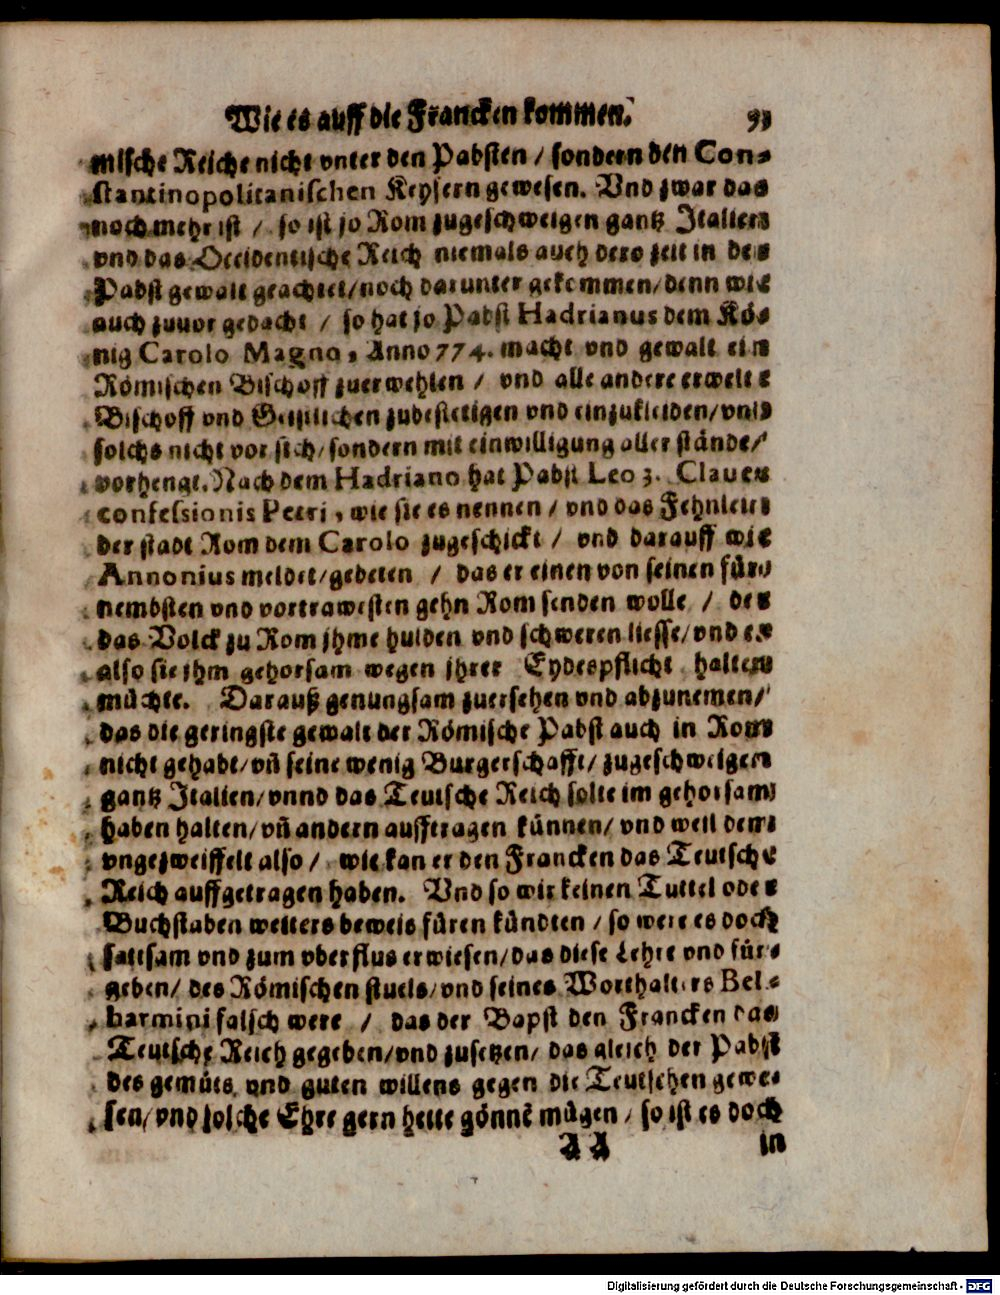 Wie es auff die Francken kommen. 93
mische Reiche nicht vnter den Pabsten / sondern den Con-
stantinopolitanischen Keysern gewesen. Vnd zwar das
noch mehr ist / so ist jo Rom zugeschweigen gantz Italien
vnd das Occidentische Reich niemals auch dero zeit in der
Pabst gewalt geachtet/noch darunter gekommen/denn wie
auch zuuor gedacht / so hat jo Pabst Hadrianus dem Kö-
nig Carolo Magno, Anno 774. macht vnd gewalt ein
Römischen Bischoff zuerwehlen / vnd alle andere erwelte
Bischoff vnd Geistlichen zubestetigen vnd einzukleiden/vnd
solchs nicht vor sich/sondern mit einwilligung aller stände/
vorhengt. Nach dem Hadriano hat Pabst Leo 3. Clauen
confessionis Petri, wie sie es nennen / vnd das Fehnlein
der stadt Rom dem Carolo zugeschickt / vnd darauff wie
Annonius meldet/gebeten / das er einen von seinen für-
nembsten vnd vortrawesten gehn Rom senden wolle / der
das Volck zu Rom jhme hulden vnd schweren liesse/vnd er
also sie jhm gehorsam wegen jhrer Eydespflicht halten
müchte. Darauß genungsam zuersehen vnd abzunemen/
das die geringste gewalt der Römische Pabst auch in Rom
nicht gehabt/vñ seine wenig Burgerschafft/zugeschweigen
gantz Italien/vnnd das Teutsche Reich solte im gehorsam
haben halten/vñ andern aufftragen künnen/vnd weil dem
vngezweiffelt also / wie kan er den Francken das Teutsche
Reich auffgetragen haben. Vnd so wir keinen Tuttel oder
Buchstaben weiters beweis füren kündten / so were es doch
sattsam vnd zum vberflus erwiesen/das diese Lehre vnd für-
geben/ des Römischen stuels/vnd seines Worthalters Bel-
harmini falsch were / das der Bapst den Francken das
Teutsche Reich gegeben/vnd zusetzen/ das gleich der Pabst
des gemüts vnd guten willens gegen die Teutschen gewe-
sen/vnd solche Ehre gern hette gönnē mügen / so ist es doch
A A in
Digitalisierung gefördert durch die Deutsche Forschungsgemeinschaft - DFG